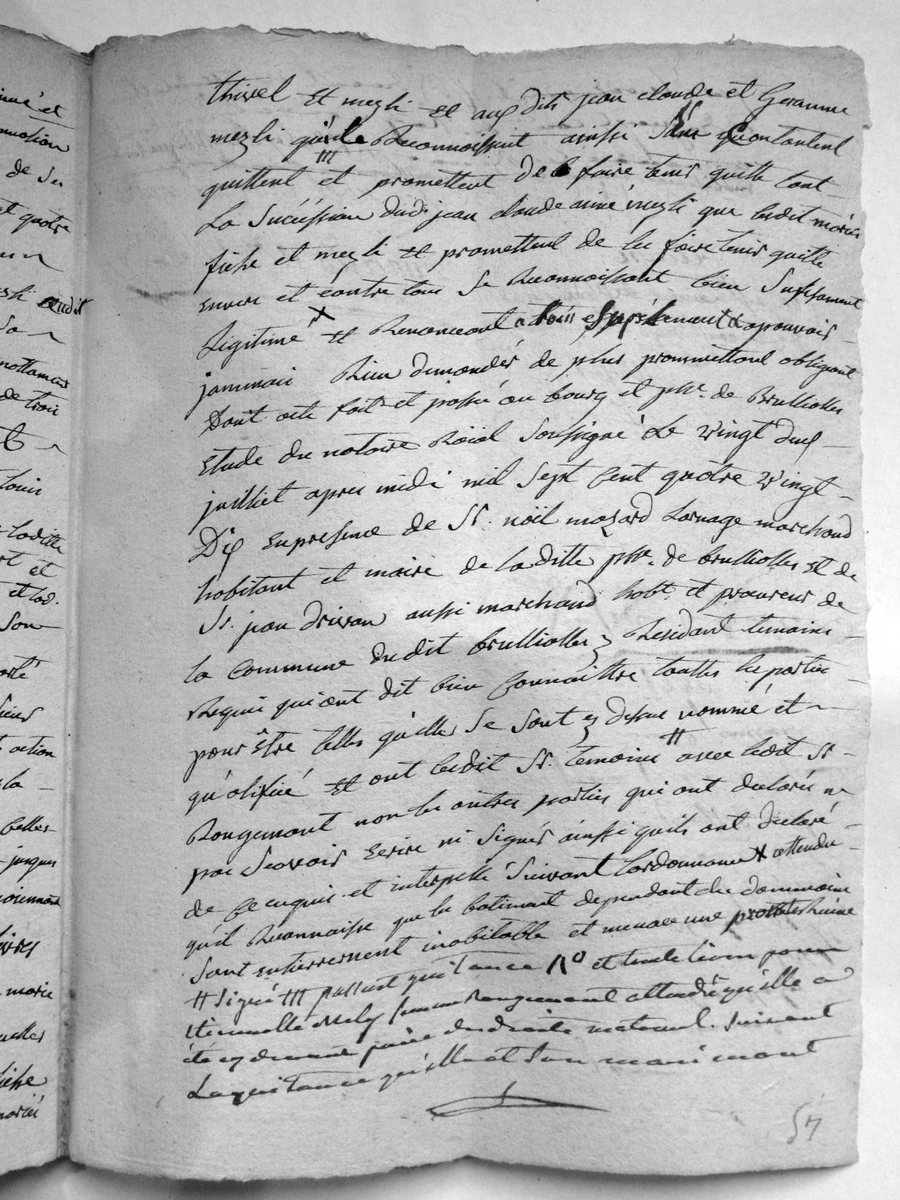 thivel et mezli et aux dits jean claude et Geranne
mezli qu'ils Reconnoissent ainsi S'en Contantent
quittent et promettent de faire tenir quitte tout
La Succéssion dudi jean claude ainé mezli que ledit mariés
fiche et mezli et promettent de les faire tenir quitte
envers et contre tous Se Reconnoissant bien Sufisament
Legitimé et Renonceant a pouvoir
jammais Rien demander de plus promettant obligant
Dont acte fait et passé au bourg et psse. de Brulliolles
Etude du notaire Roïal Soussigné Le vingt deux
juilliet apres midi mil Sept Cent quatre vingt
Dix en presense de Sr. noël mazard Lornage marchand
habitant et maire de la ditte psse. de brulliolles et de
Sr. jean drivon aussi marchand habt. et procureur de
la Commune dudit brulliolles y Residant temoins
Requis qui ont dit bien Connaittre touttes les parties
pour Être telles qu'elles Se Sont cy dessus nommé et
qualifié et ont lesdit Sr. temoins # avec ledit Sr
Rougemont non les autres parties qui ont declarés ne
pas Scavoir Ecrire ni Signer ainsi quils ont declaré
de Ce enquis et interpellé Suivant Lordonnance x attendu
qu'il Reconnaisse que les batiment dependant du dommaine
Sont entierrement inabitable et menace une ruine
# Signé ### passant quitance
attendu qu'elle a
été cy devant païée des droits maternel. Suivant
La quitance qu'elle et Son mari m'ont
57